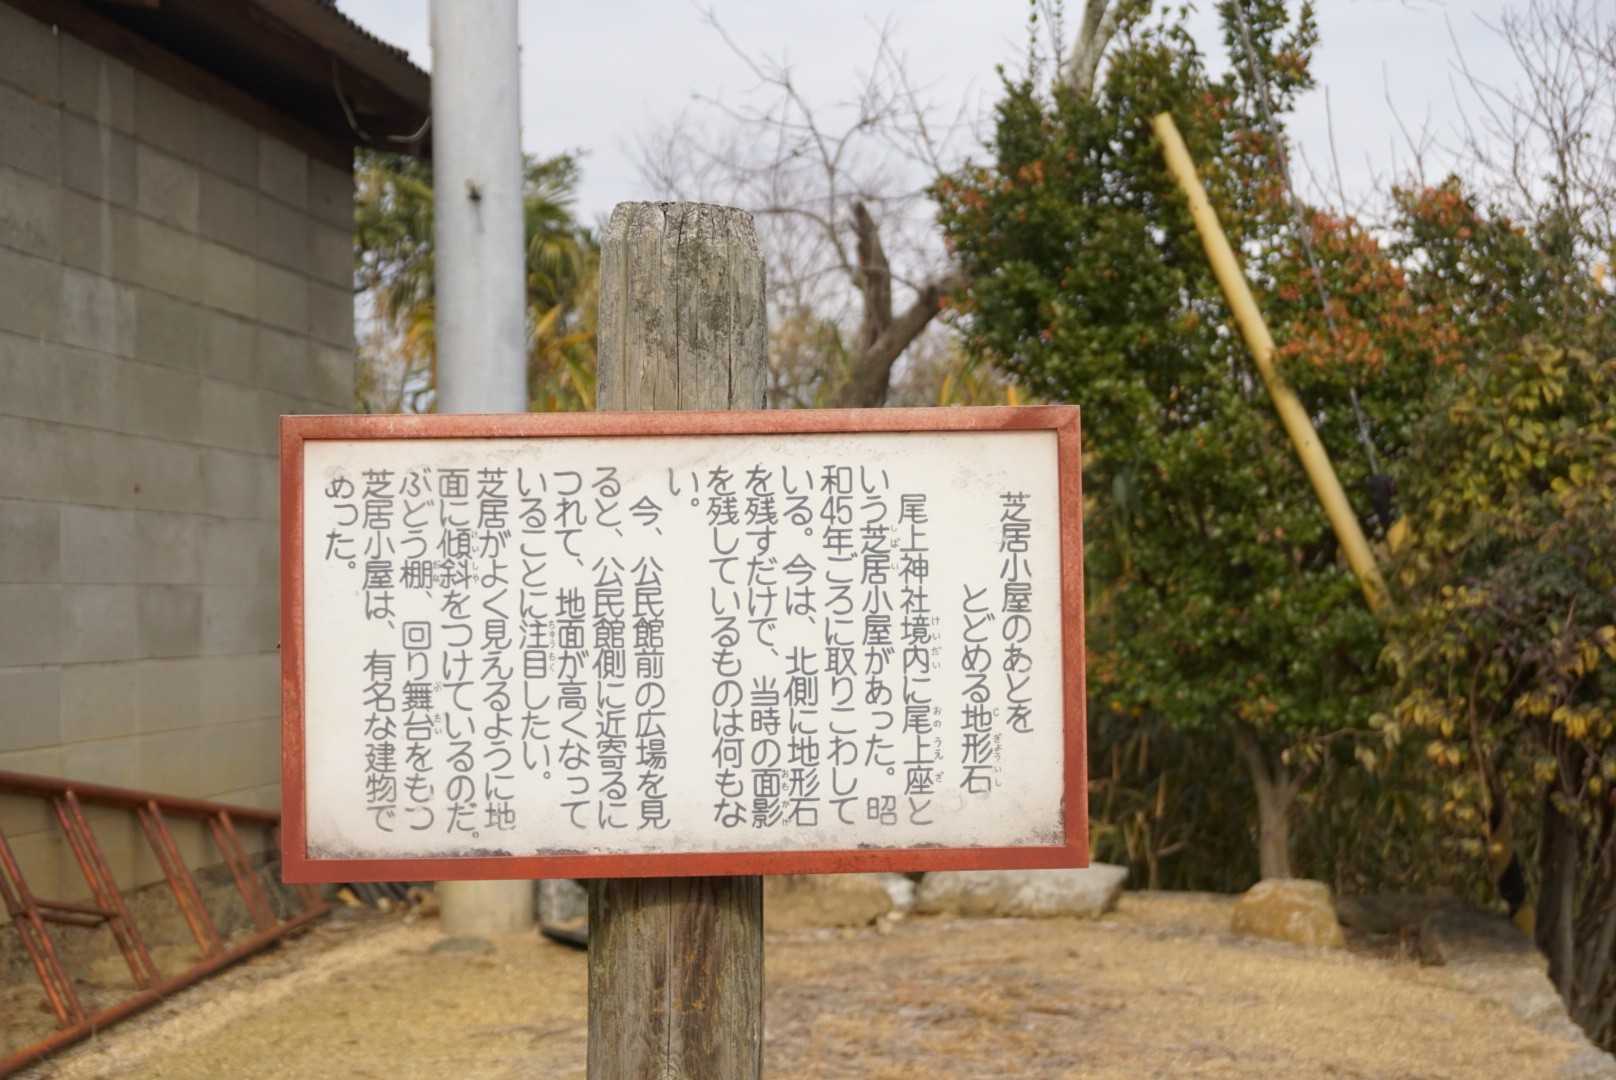 芝居小屋のあとを
とどめる地形石
尾上神社境内に尾上座と
いう芝居小屋があった。昭
和45年ごろに取りこわして
いる。今は、北側に地形石
を残すだけで、当時の面影
を残しているものは何もな
い。
今、公民館前の広場を見
ると、公民館側に近寄るに
つれて、地面が高くなって
いることに注目したい。
芝居がよく見えるように地
面に傾斜をつけているのだ。
ぶどう棚、回り舞台をもつ
芝居小屋は、有名な建物で
めった。